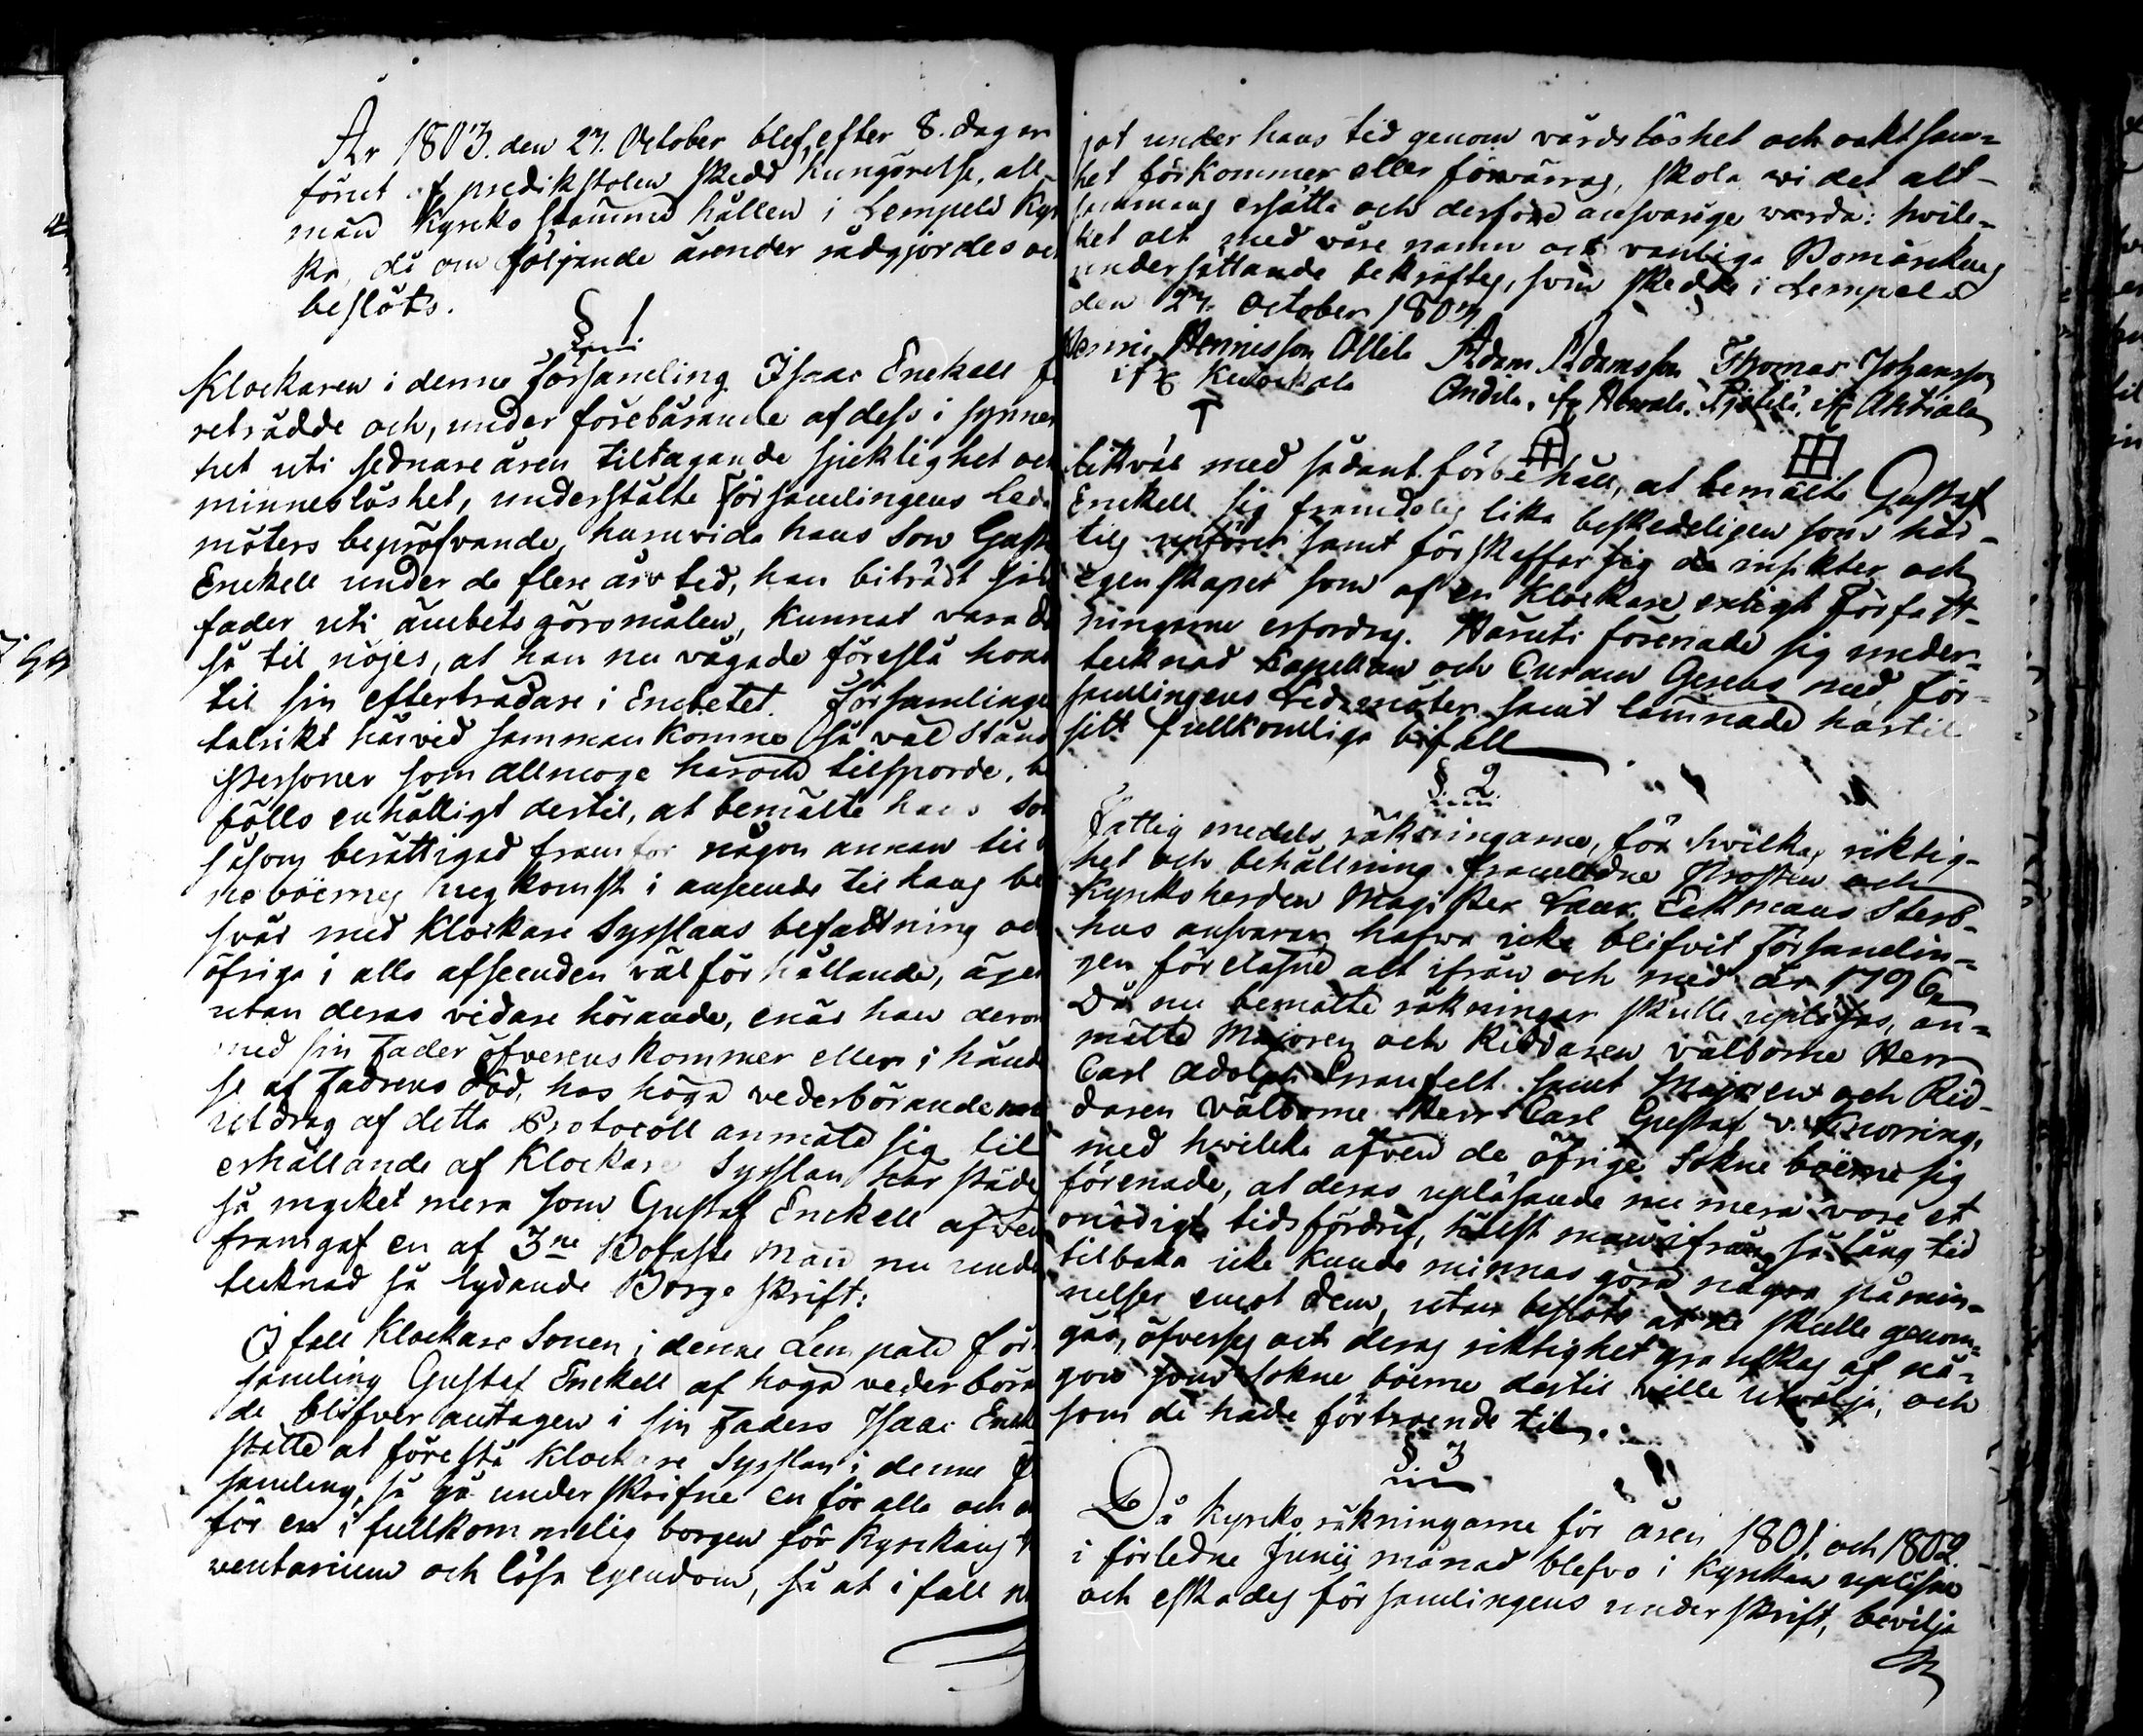 År 1803. den 27. October blef, efter 8. dagar
förut af predikstolen skedd kungörelse, all-
män Kyrko stämma hållen i Lempälä Kyr
ka, då om följande ärender rådgjordes oc
beslöts.
§ 1
Klockaren i denne församling Isaac Enckell
reträdde och, under förebärande af dess i synner
het uti sednare åren tiltagande sjuklighet och
minneslöshet, understälte församlingens Led-
möters bepröfvande, huruvida hans Son Gusta
Enckell under de flere års tid, han biträdt sin
fader uti ämbets göromålen, kunnat vara de
så til nöjes, at han nu vågade föreslå hono
til sin efterträdare i Embetet. Församlinge
talrikt härvid sammankomne så väl Stånds
Personer som Allmoge härom tilsporde, bi
föllo enhälligt dertil, at bemälte hans Son
såsom berättigad framför någon annan til
ne böernes hugkomst i anseende til hans be
svär med Klockare Sysslans befattning och
öfriga i alla afseenden välförhållande, äger
utan deras vidare hörande, enär han derom
med sin Fader öfverenskommer eller i händel
se af Fadrens död, hos höga vederbörande med
utdrag af detta Protocoll anmäla sig til
erhållande af Klockare Sysslan här städes
så mycket mera som Gustaf Enckell äfven
framgaf en af 3ne Bofaste Män nu under
tecknad så lydande Borge skrift:
I fall Klockare Sonen i denne Lempälä för
samling Gustaf Enckell af höga vederböran
de blifver antagen i sin Faders Isaac Enck
ställe at förestå Klockare Sysslan i denne F
samling, så gå underskrifne en för alla och al
för en i fullkommelig borgen för Kyrckans In
ventarium och lösa egendom, så at i fall nå
got under hans tid genom vårdslöshet och oaktsam-
het förkommer eller förvärras, skola vi det alt-
sammans ersätta och derföre ansvarige varda: hvil-
ket alt med våre namn och vanliga Bomärkens
undersättande bekräftes, som skedde i Lempälä
den 27. October 1803
Henric Henricsson Ollila Adam Adamsson Thomas Johansson
ifr Kulockala Ondila, fr Hawala. Pjätilä, ifr Aktiala
likväl med sådant förbehåll, at bemälte Gustaf
Enckell sig framdeles lika beskedeligen som här-
tils upförer samt förskaffar sig de insikter och
egenskaper som af en Klockare enligt Författ-
ningarne erfordras. Häruti förenade sig under-
tecknad Capellan och Curam Gerens med För-
samlingens Ledamöter samt lämnade härtil
sitt fullkomliga bifall
§ 2
Fattig medels räkningarne, för hvilkas riktig-
het och behållning framledne Prosten och
Kyrkoherden Magister Laur. Eckmans Sterb-
hus ansvarar, hafva icke blifvit Församlin-
gen föreläsne alt ifrån och med år 1796.
Då nu bemälte räkningar skulle upläsas, an-
mälte Majoren och Riddaren välborne Herr
Carl Adolph Granfelt samt Majoren och Rid-
daren välborne Herr Carl Gustaf v. Knorring,
med hvilcka äfven de öfrige Sokneböerne sig
förenade, at deras upläsande nu mera vore et
onödigt tidsfördrif, hälst man ifrån så lång tid
tilbaka icke kunde minnas göra några påmin-
nelser emot dem, utan beslöts at de skulle genom-
gås, öfverses och deras riktighet granskas af nå-
gon som Sokne böerne dertil ville utvälja, och
som de hade förtroende til.
§ 3
Då Kyrko räkningarne för åren 1801. och 1802.
i förledne Junij månad blefvo i Kyrckan upläsne
och eskades församlingens underskrift, bevilja